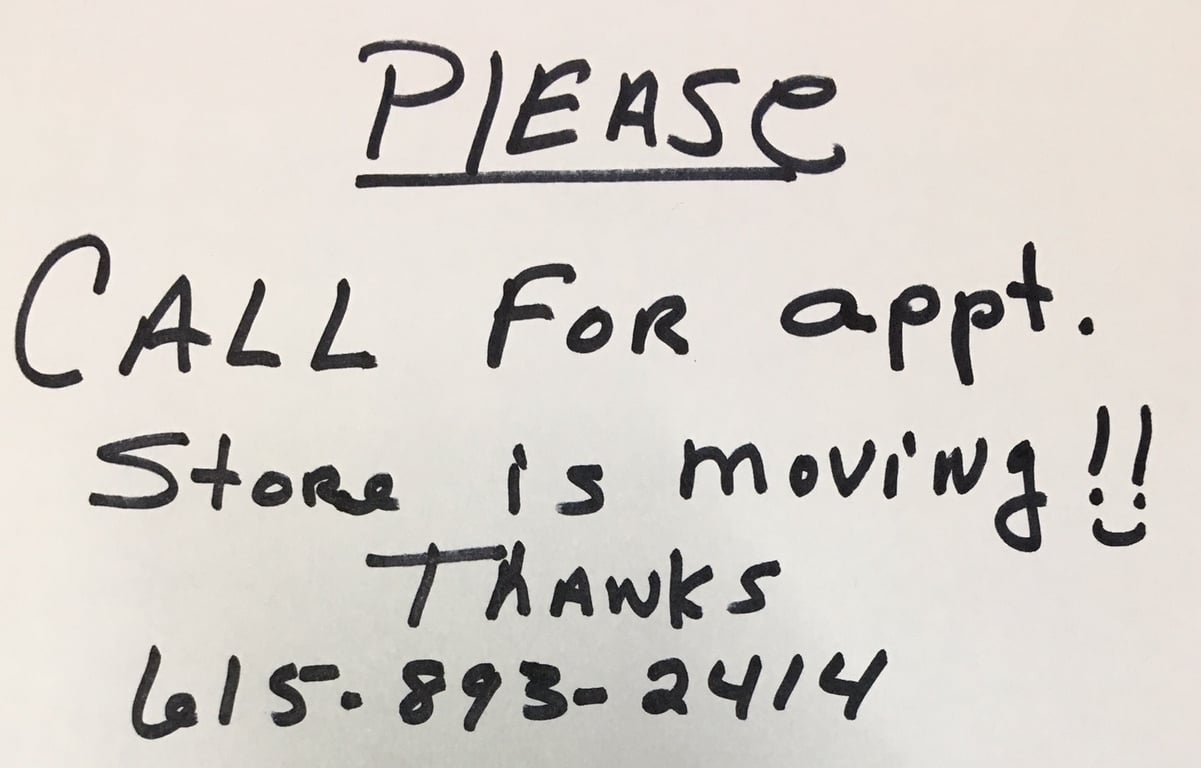 PlEASe
CALL FOR appt.
Store is moving!!
Thanks
615-893-2414